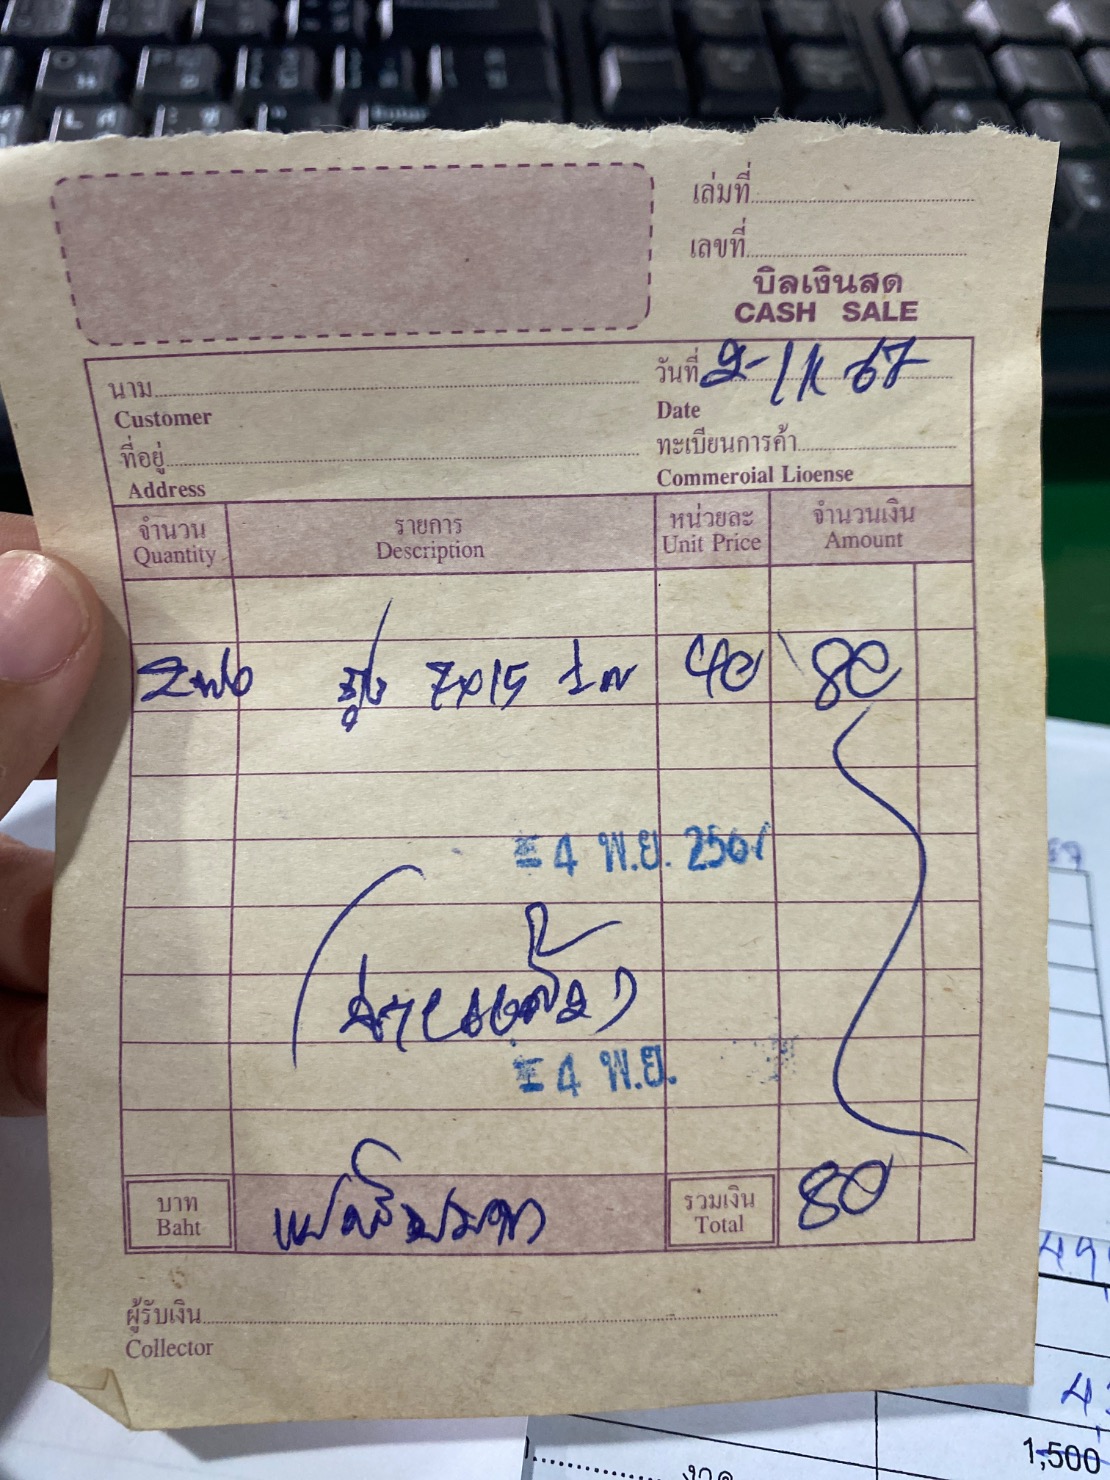 เล่มที่
เลขที่
บิลเงินสด
CASH SALE
นาม
วันที่ 2-11-67
Customer
Date
ที่อยู่
ทะเบียนการค้า
Address
Commeroial Lioense
จำนวน รายการ หน่วยละ จำนวนเงิน
Quantity Description Unit Price Amount
2 ถุง 7x15 40 80
4 พ.ย. 256
จ่ายเงินแล้ว
4 พ.ย.
บาท แปดสิบบาท รวมเงิน 80
Baht Total
ผู้รับเงิน
Collector
1,500
งวด